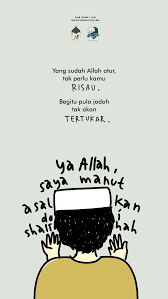 Yang sudah Allah atur,
tak perlu kamu
RISAU.
Begitu pula jodoh
tak akan
TERTUKAR.
ya Allah,
saya manut
asal kan
do i
shali hah